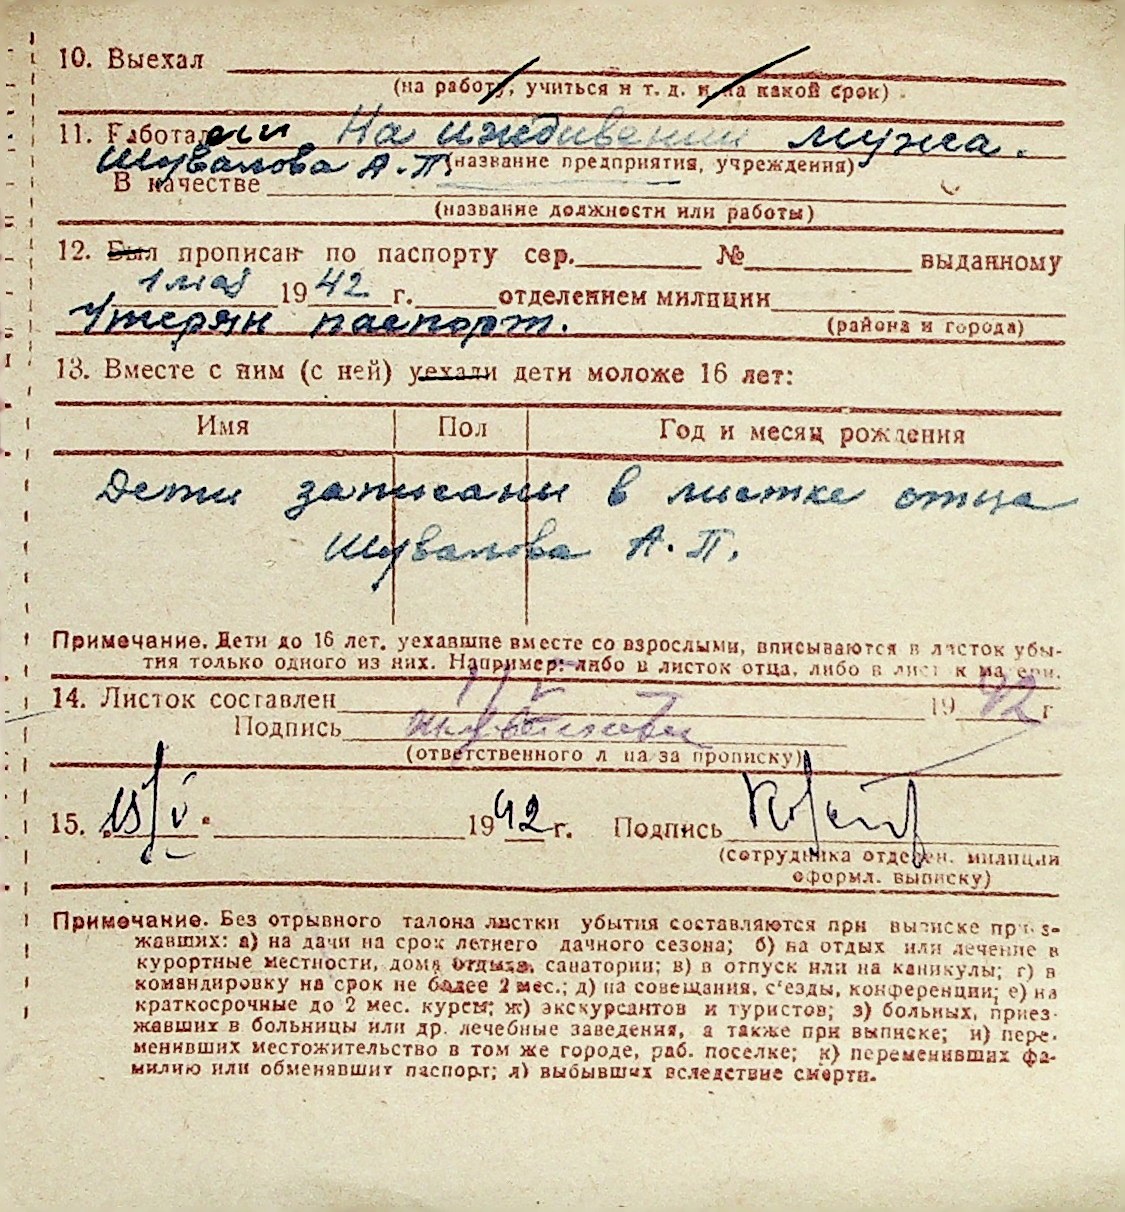 10. Выехал
(на работу, учиться и т. д. и на какой срок)
11. Работал На иждивении мужа.
Шувалова А. П. (название предприятия, учреждения)
В качестве
(название должности или работы)
12. Был прописан по паспорту сер. № выданному
1 мая 1942 г. отделением милиции
Утерян паспорт. (района и города)
13. Вместе с ним (с ней) уехали дети моложе 16 лет:
Имя Пол Год и месяц рождения
Дети записаны в листке отца
Шувалова А. П.
Примечание. Дети до 16 лет, уехавшие вместе со взрослыми, вписываются в листок убы-
тия только одного из них. Например: либо в листок отца, либо в листок матери.
14. Листок составлен 1942 г
Подпись
(ответственного лица за прописку)
15. 15/V 1942 г. Подпись
(сотрудника отделен. милиции
оформл. выписку)
Примечание. Без отрывного талона листки убытия составляются при выписке приез-
жавших: а) на дачи на срок летнего дачного сезона; б) на отдых или лечение в
курортные местности, дома отдыха, санатории; в) в отпуск или на каникулы; г) в
командировку на срок не более 2 мес.; д) на совещания, с'езды, конференции; е) на
краткосрочные до 2 мес. курсы; ж) экскурсантов и туристов; з) больных, приез-
жавших в больницы или др. лечебные заведения, а также при выписке; и) пере-
менивших местожительство в том же городе, раб. поселке; к) переменивших фа-
милию или обменявших паспорт; л) выбывших вследствие смерти.